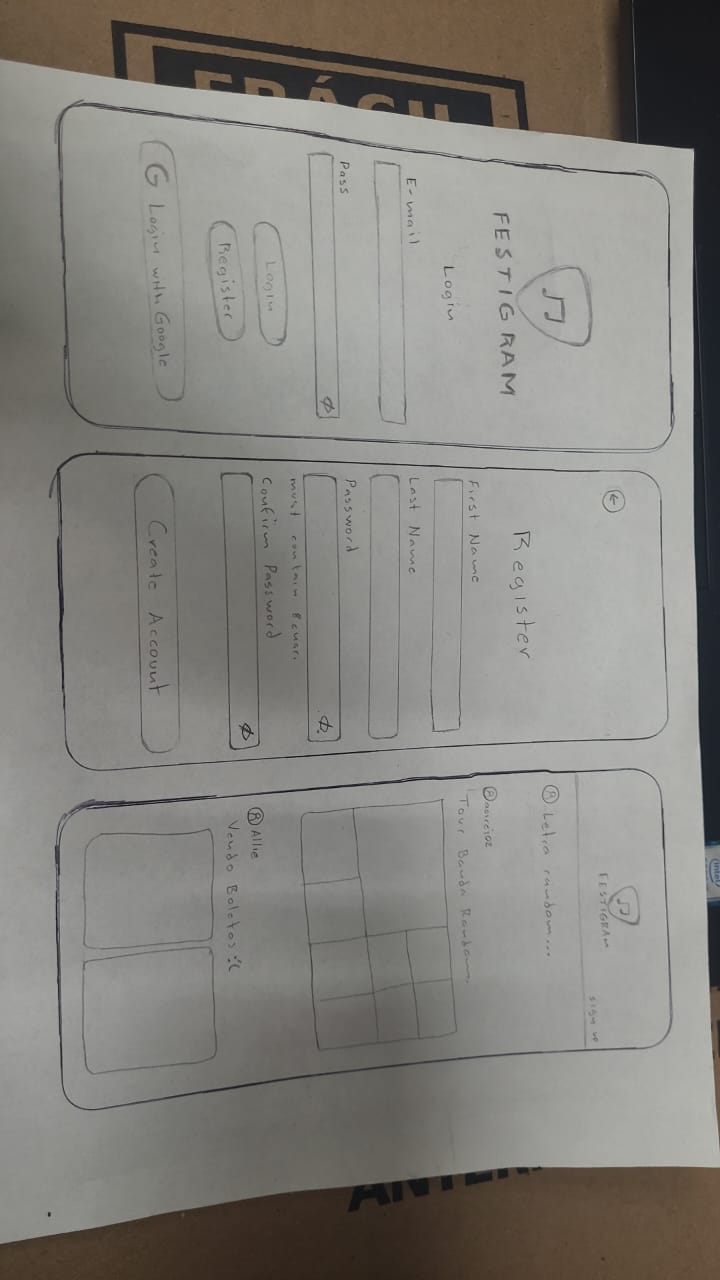 FRÁGIL
FESTIGRAM
Login
E-mail
Pass
Login
Register
G Login with Google
Register
First Name
Last Name
Password
must contain 8 char.
Confirm Password
Create Account
FESTIGRAM
sign up
Letra random...
Tour Banda Random.
Allie
Vendo Boletos :(
intel